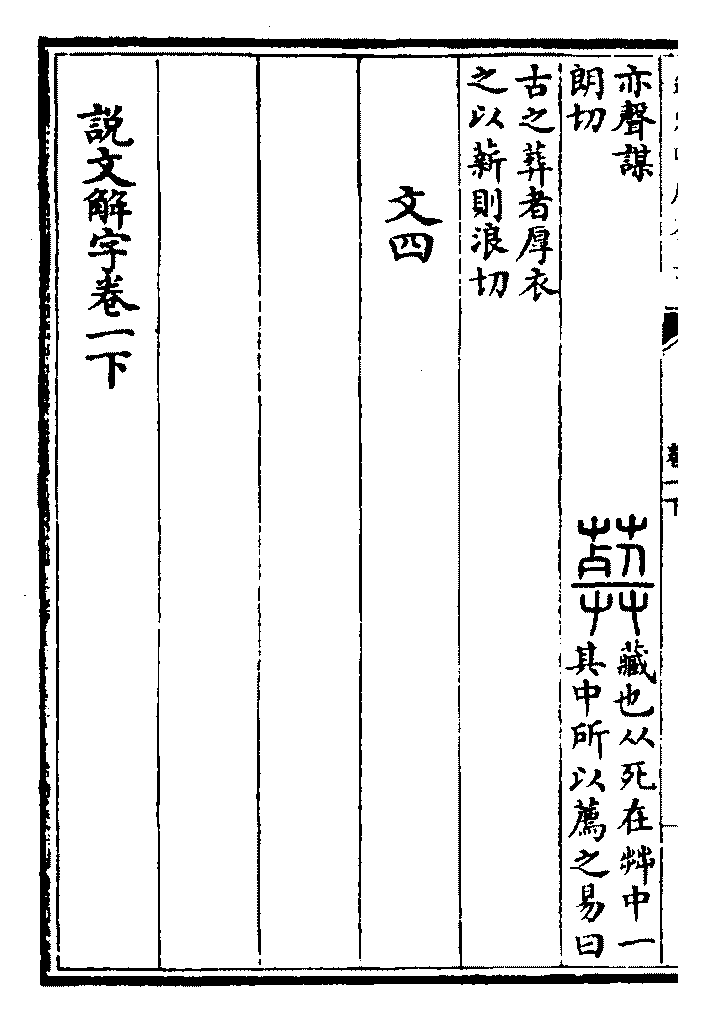 亦聲謀
朗切
葬
藏也从死在茻中一
其中所以薦之易曰
古之葬者厚衣
之以薪則浪切
文四
説文解字卷一下